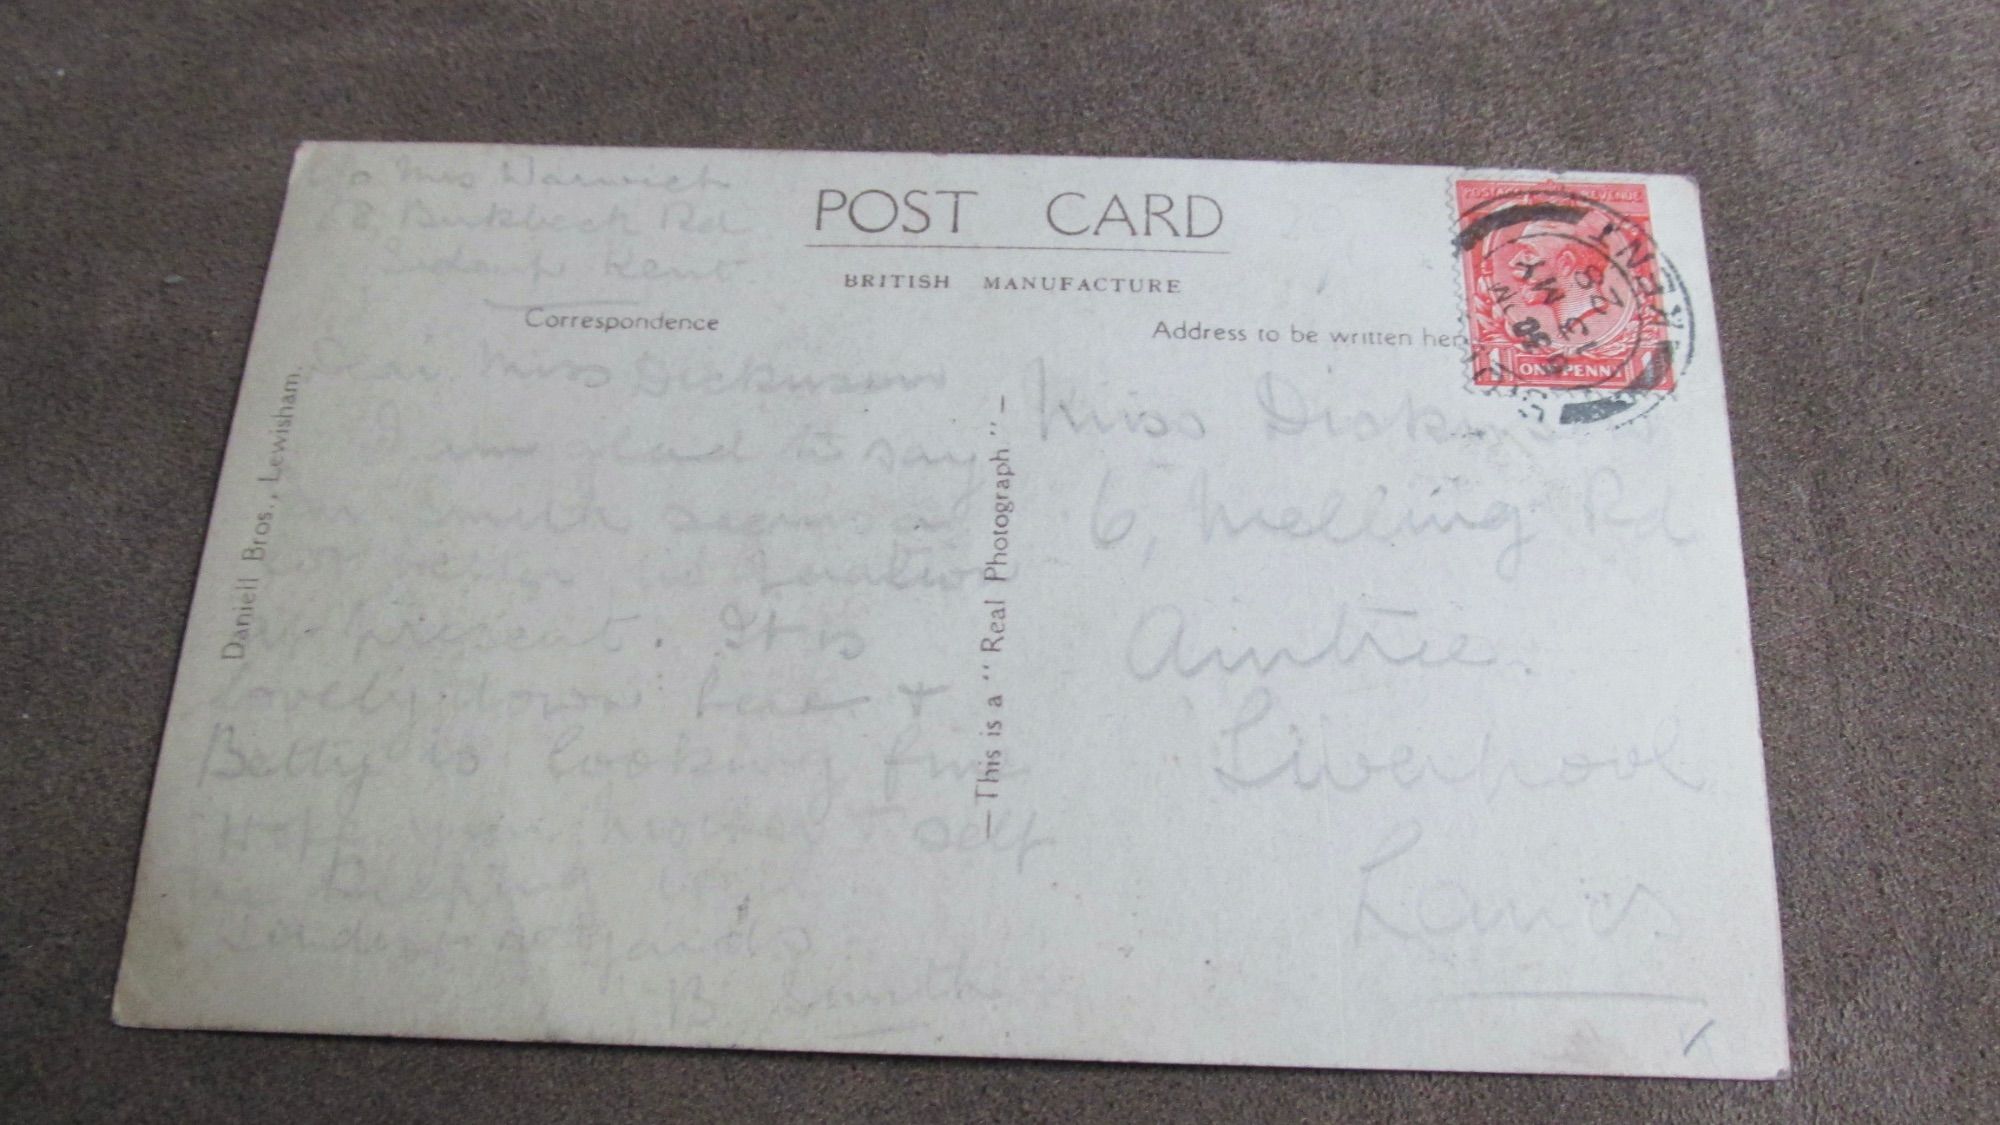 c/o Mrs Warwick
Birkbeck Rd
Sidcup Kent
POST CARD
BRITISH MANUFACTURE
Correspondence
Address to be written here
POSTAGE REVENUE
ONE PENNY
KENT
MY
Dear Miss Dickinson
I am glad to say
Mr Smith seems a
lot better in
at present. It is
lovely down here +
Betty is looking fine
Hope your mother + self
is keeping well
Kindest regards
B Smith
Daniell Bros., Lewisham.
—This is a "Real Photograph"—
Miss Dickinson
6, Melling Rd
Aintree.
Liverpool
Lancs